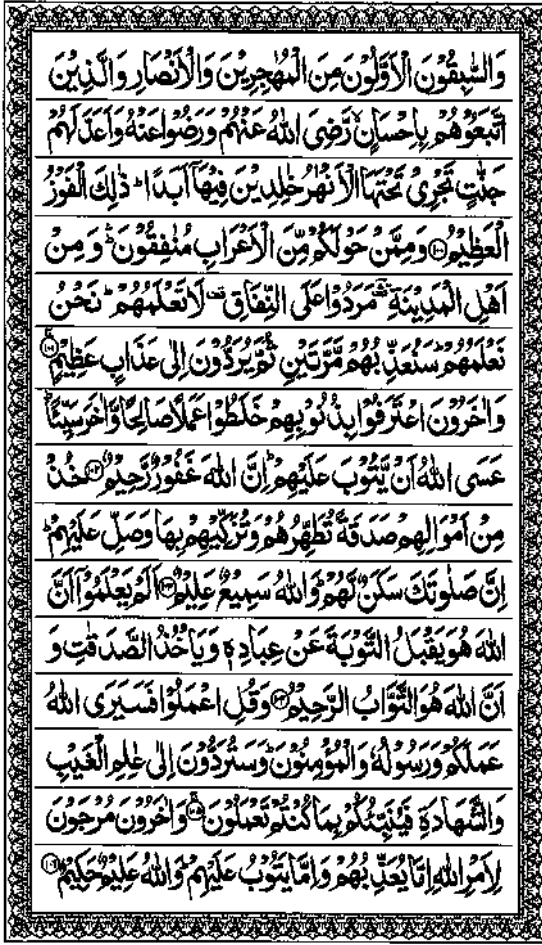 وَالسّٰبِقُوْنَ الْاَوَّلُوْنَ مِنَ الْمُهٰجِرِيْنَ وَالْاَنْصَارِ وَالَّذِيْنَ
اتَّبَعُوْهُمْ بِاِحْسَانٍ ۙ رَّضِیَ اللّٰهُ عَنْهُمْ وَرَضُوْا عَنْهُ وَاَعَدَّ لَهُمْ
جَنّٰتٍ تَجْرِیْ تَحْتَهَا الْاَنْهٰرُ خٰلِدِيْنَ فِيْهَاۤ اَبَدًا ؕ ذٰلِكَ الْفَوْزُ
الْعَظِيْمُ ﴿۱۰۰﴾ وَمِمَّنْ حَوْلَكُمْ مِّنَ الْاَعْرَابِ مُنٰفِقُوْنَ ؕ وَمِنْ
اَهْلِ الْمَدِيْنَةِ ؔۛ مَرَدُوْا عَلَی النِّفَاقِ ۫ لَا تَعْلَمُهُمْ ؕ نَحْنُ
نَعْلَمُهُمْ ؕ سَنُعَذِّبُهُمْ مَّرَّتَيْنِ ثُمَّ يُرَدُّوْنَ اِلٰی عَذَابٍ عَظِيْمٍ ﴿۱۰۱﴾
وَاٰخَرُوْنَ اعْتَرَفُوْا بِذُنُوْبِهِمْ خَلَطُوْا عَمَلًا صَالِحًا وَّاٰخَرَ سَيِّئًا ؕ
عَسَی اللّٰهُ اَنْ يَّتُوْبَ عَلَيْهِمْ ؕ اِنَّ اللّٰهَ غَفُوْرٌ رَّحِيْمٌ ﴿۱۰۲﴾ خُذْ
مِنْ اَمْوَالِهِمْ صَدَقَةً تُطَهِّرُهُمْ وَتُزَكِّيْهِمْ بِهَا وَصَلِّ عَلَيْهِمْ ؕ
اِنَّ صَلٰوتَكَ سَكَنٌ لَّهُمْ ؕ وَاللّٰهُ سَمِيْعٌ عَلِيْمٌ ﴿۱۰۳﴾ اَلَمْ يَعْلَمُوْۤا اَنَّ
اللّٰهَ هُوَ يَقْبَلُ التَّوْبَةَ عَنْ عِبَادِهٖ وَيَاْخُذُ الصَّدَقٰتِ وَ
اَنَّ اللّٰهَ هُوَ التَّوَّابُ الرَّحِيْمُ ﴿۱۰۴﴾ وَقُلِ اعْمَلُوْا فَسَيَرَی اللّٰهُ
عَمَلَكُمْ وَرَسُوْلُهٗ وَالْمُؤْمِنُوْنَ ؕ وَسَتُرَدُّوْنَ اِلٰی عٰلِمِ الْغَيْبِ
وَالشَّهَادَةِ فَيُنَبِّئُكُمْ بِمَا كُنْتُمْ تَعْمَلُوْنَ ﴿۱۰۵﴾ وَاٰخَرُوْنَ مُرْجَوْنَ
لِاَمْرِ اللّٰهِ اِمَّا يُعَذِّبُهُمْ وَاِمَّا يَتُوْبُ عَلَيْهِمْ ؕ وَاللّٰهُ عَلِيْمٌ حَكِيْمٌ ﴿۱۰۶﴾